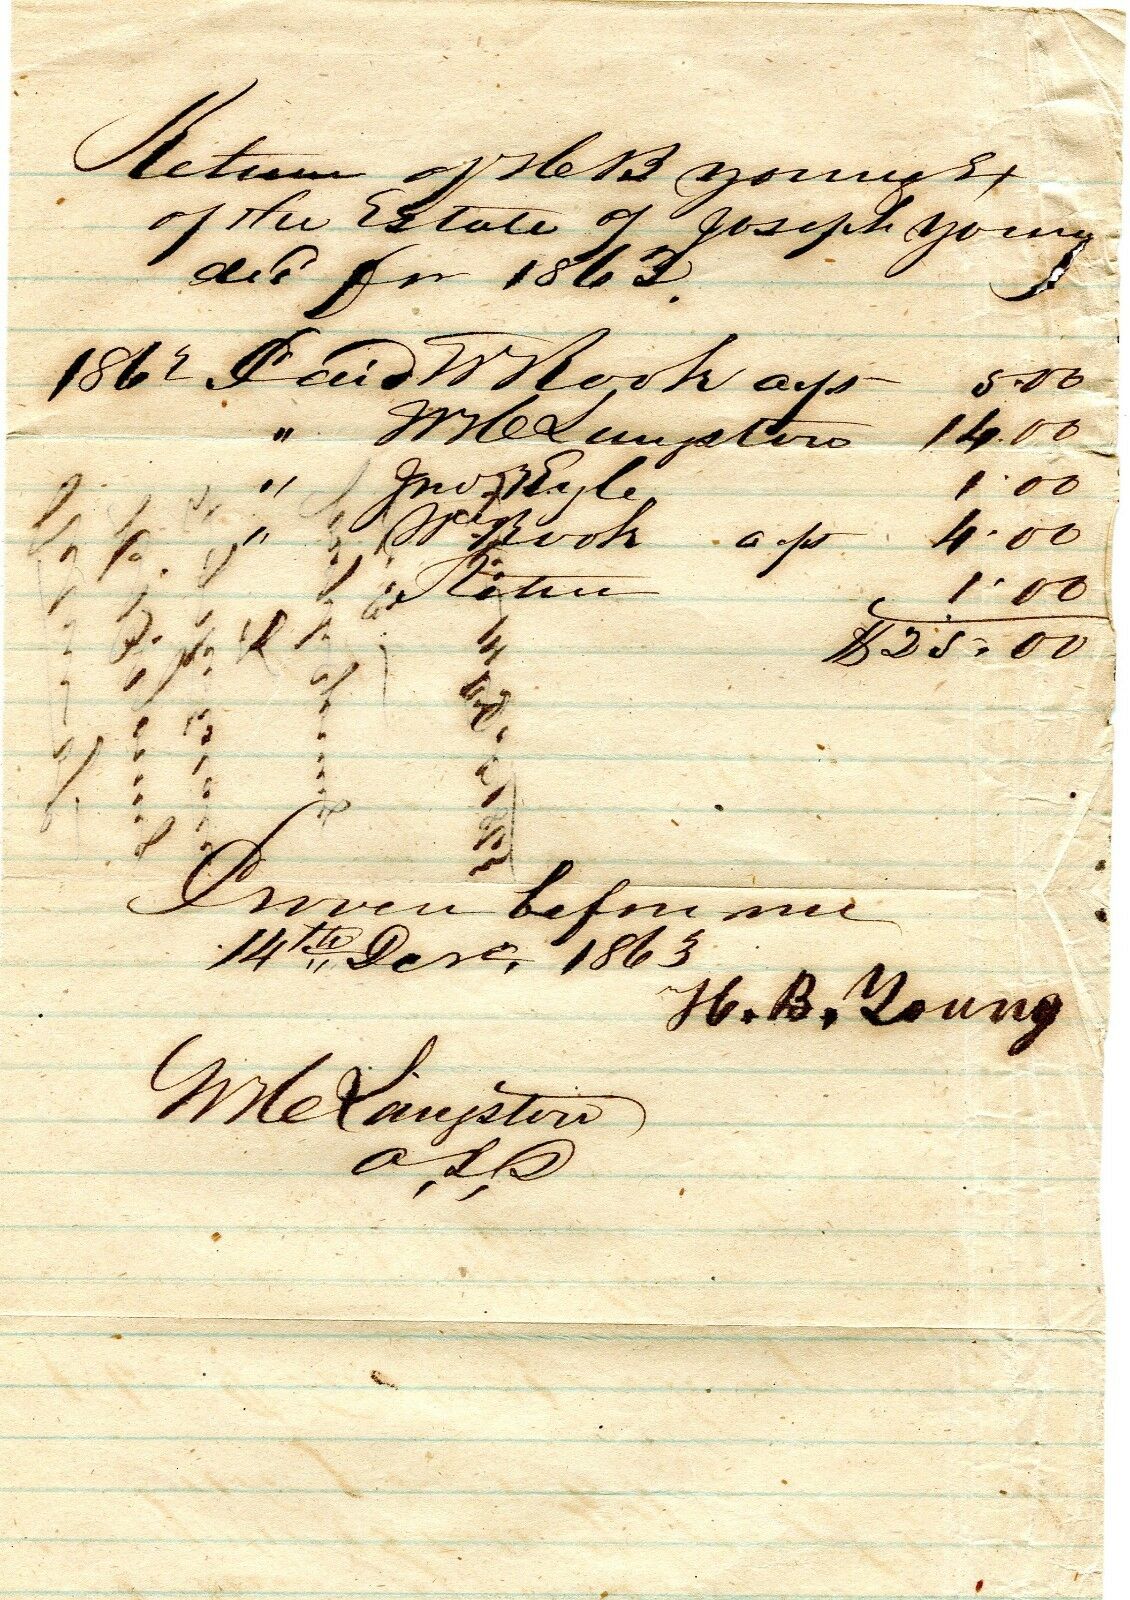 Return of H B Young Ex
of the Estate of Joseph Young
decd for 1863.
1863 Paid W Rook a/ps 5.00
" W H Langston 14.00
" Jno Kyle 1.00
" W Rook a/ps 4.00
Return 1.00
$25.00
Proven before me
14th Dec. 1863
H. B. Young
W H Langston